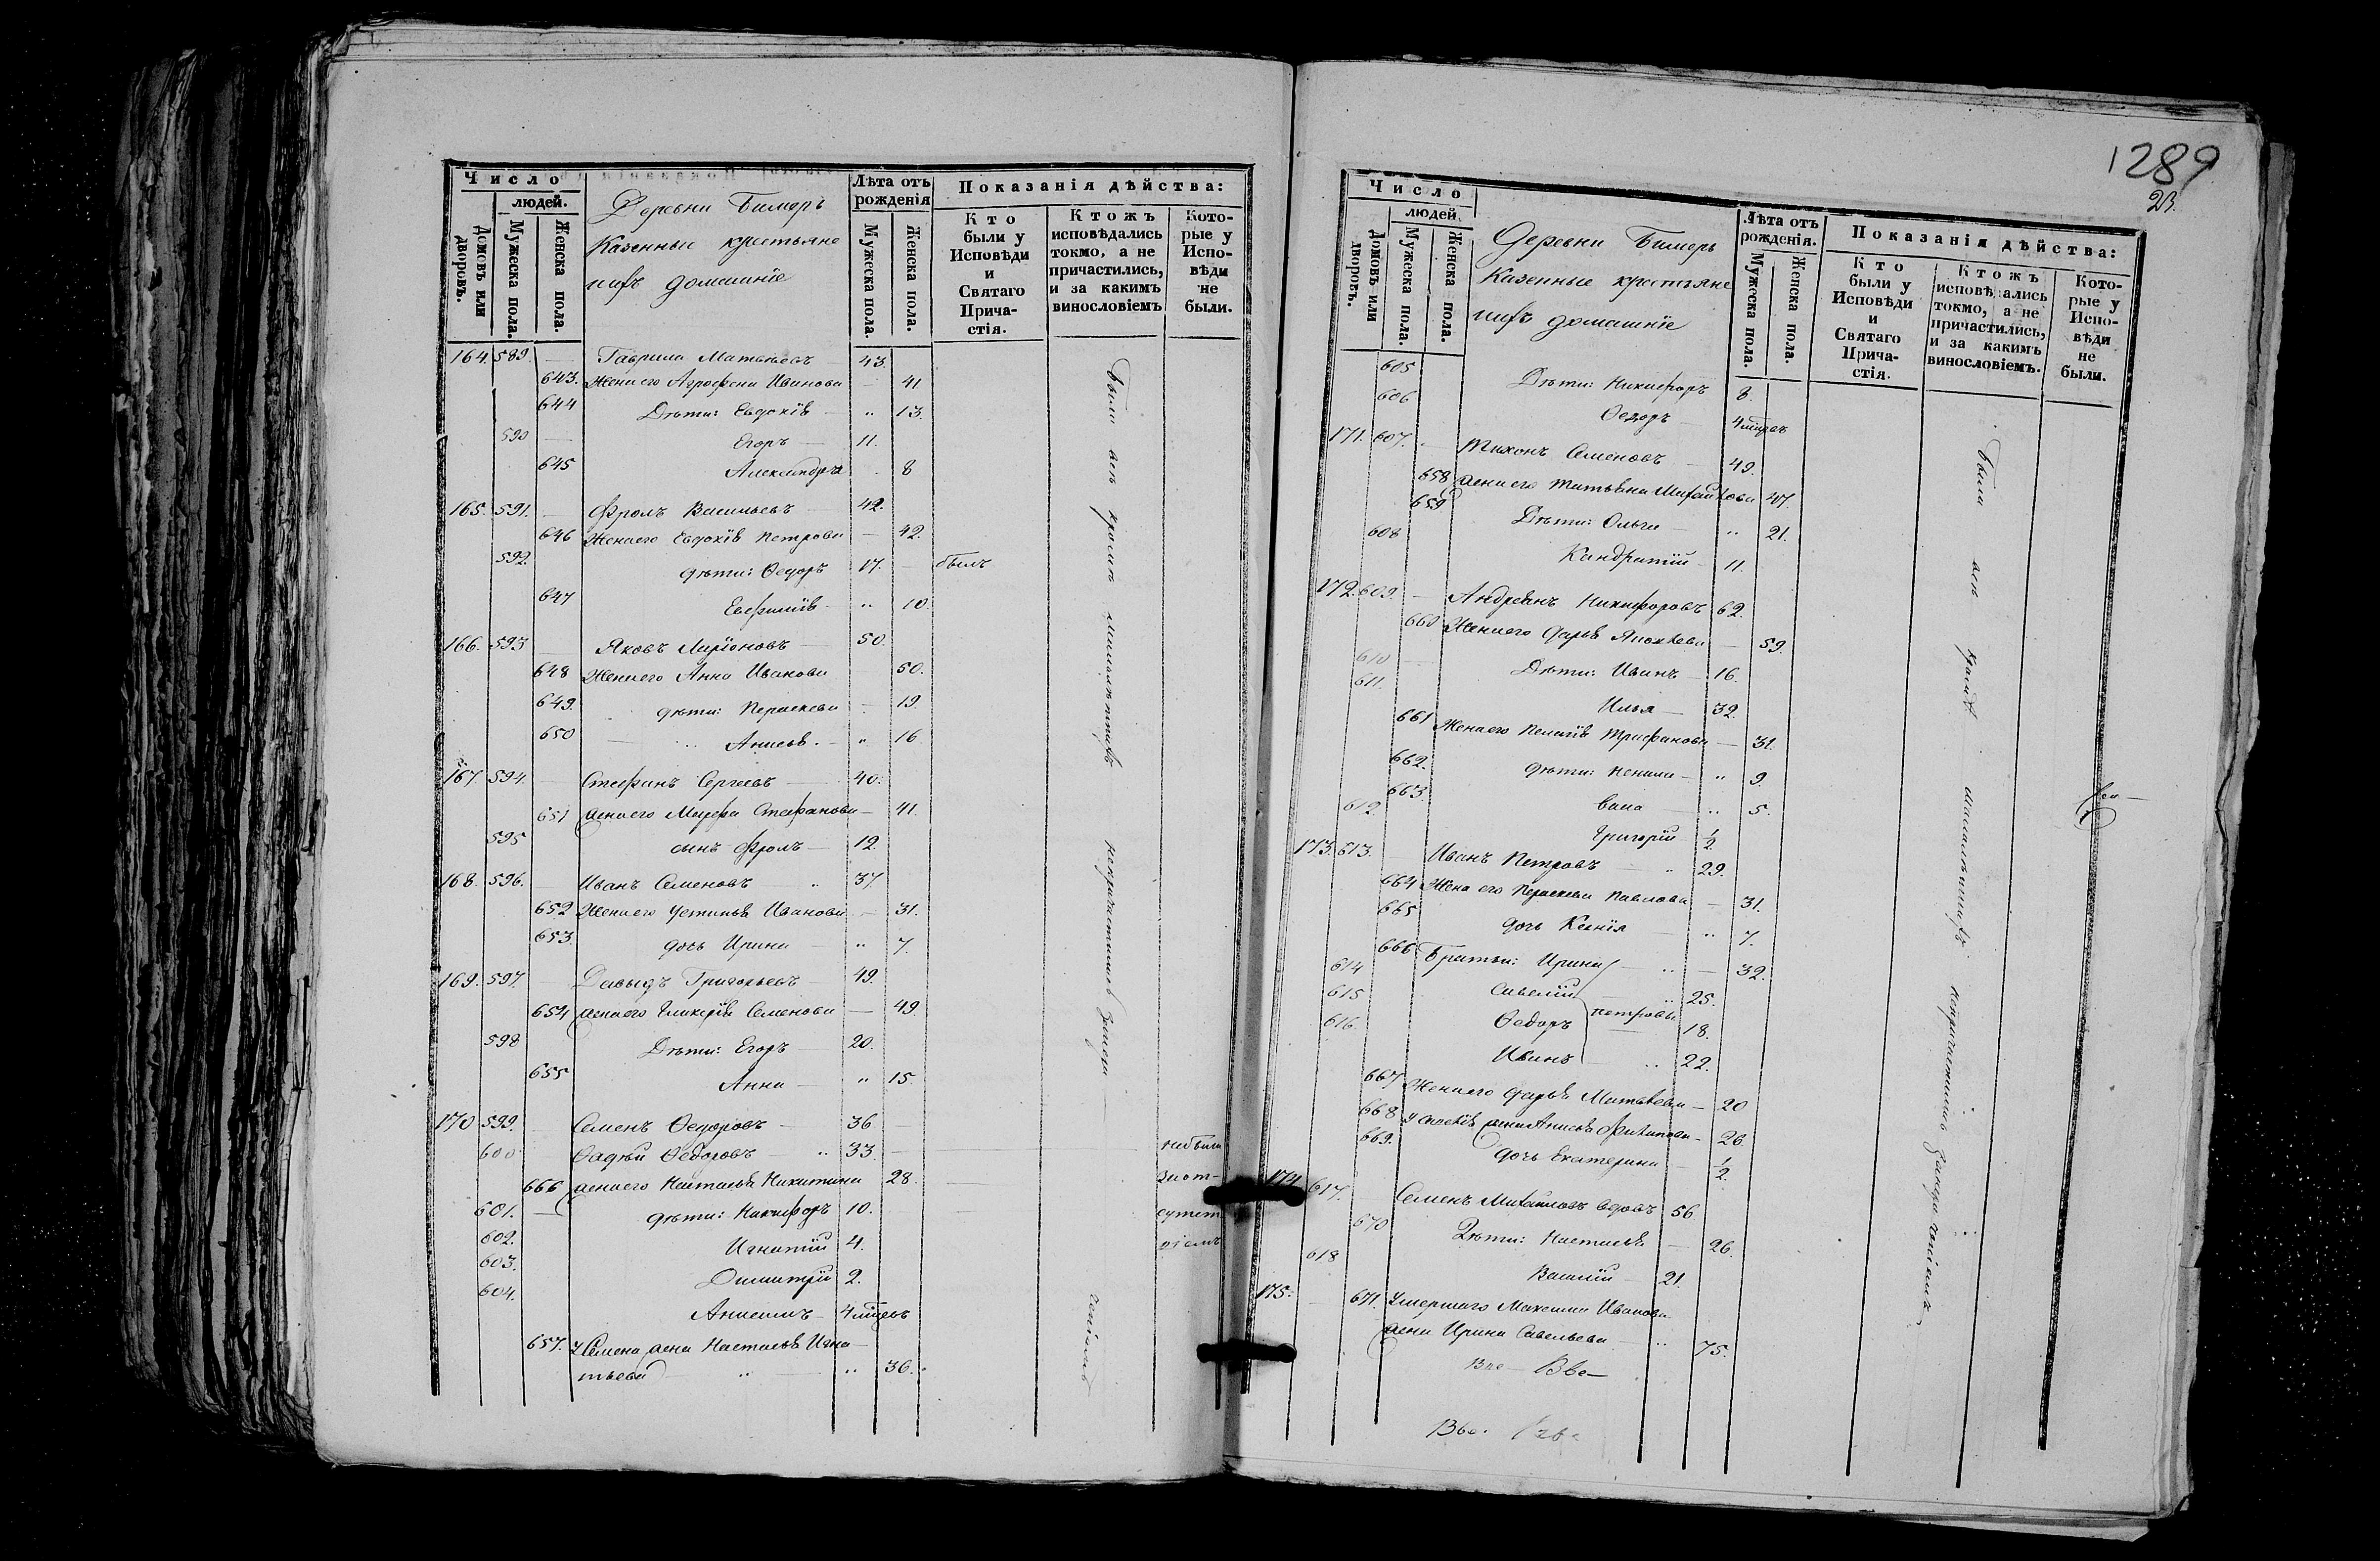 Число
людей.
Домовъ или дворовъ.
Мужеска пола.
Женска пола.
Деревни Бимеръ
Казенные крестьяне
ихъ домашніе
Лѣта отъ рожденія
Мужеска пола.
Женска пола.
Показанія дѣйства:
Кто были у Исповѣди и Святаго Причастія.
Ктожъ исповѣдались токмо, а не причастились, и за какимъ винословіемъ
Которые у Исповѣди не были.
164. 589. — Гаврила Матвѣевъ — 43.
643. Жена его Агрофена Иванова — 41
644 Дѣти: Евдокія — " 13.
590 — Егоръ — 11.
645 Александра . 8
165. 591. — Фролъ Васильевъ — 42.
646 Жена его Евдокія Петрова — 42.
592. дѣти: Ѳедоръ 17. — былъ
647 Евфимія — " 10.
166. 593 — Яковъ Ларіоновъ — 50.
648 Жена его Анна Иванова 50.
649. дѣти: Пераскева — 19
650 — Анисья. — " 16
167. 594. — Стефанъ Сергеевъ — 40.
651 жена его Марфа Стефанова — 41.
595 сынъ Фролъ — 12.
168. 596. — Иванъ Семеновъ 37
652 Жена его Устинья Иванова — 31.
653. дочь Ирина " 7.
169. 597. — Давыдъ Григорьевъ — 49.
654 жена его Гликерія Семенова — 49
598 Дѣти: Егоръ — 20.
655 Анна — " 15.
170 599. — Семенъ Ѳедоровъ — 36 —
600 — Ѳадѣй Ѳедоровъ — " 33. — небыли
666 жена его Настасья Никитина 28. — за от-
601. — дѣти: Никифоръ 10. сутст
602. Игнатій 4. віемъ
603. Димитрій 2.
604. Анисимъ — 4 мѣсецъ
657. У Семена жена Настасья Игна-
тьева — " 36.
были всѣ кромѣ малолѣтнихъ непричастились за нера-
чѣніемъ
1289
23.
Число
людей.
Домовъ или дворовъ.
Мужеска пола.
Женска пола.
Деревни Бимеръ
Казенные крестьяне
ихъ домашніе
Лѣта отъ рожденія.
Мужеска пола.
Женска пола.
Показанія дѣйства:
Кто были у Исповѣди и Святаго Причастія.
Ктожъ исповѣдались токмо, а не причастились, и за какимъ винословіемъ.
Которые у Исповѣди не были.
605 Дѣти: Никифоръ 8.
606 Ѳедоръ — 4 мѣсецъ
171. 607. — Тихонъ Семеновъ — 49.
658 жена его Татьяна Михайлова 47.
659 Дѣти: Ольга — " 21.
608 Кандратій — 11.
172. 609. — Андреянъ Никифоровъ 62.
660 Жена его Дарья — 59.
610 — Дѣти: Иванъ — 16.
611. Илья — 32.
661 Жена его Пелагія Трифанова — 31.
662. дѣти: — " 9.
663. " 5.
612. Григорій 1/2
173. 613. — Иванъ Петровъ — " 29.
664 Жена его Пераскева Павлова — 31.
665 дочь Ксенія — " 7.
666 Братьи: Ирина — " — 32.
614 Савелій — " 25.
615 Ѳедоръ Петровы — 18.
616. Иванъ — " 22.
667 Жена его Дарья Матвѣева — 20
668 жена Анисья Филипова — 26.
669. дочь Екатерина — 1/2
174 617. — Семенъ Михайловъ вдовъ 56
670 Дѣти: Настасья — 26.
618 Василій — 21.
175. — 671. Умершаго Максима Иванова
жена Ирина Савельева — " 75.
Были всѣ кромѣ малолѣтнихъ непричастились за нерачѣніемъ